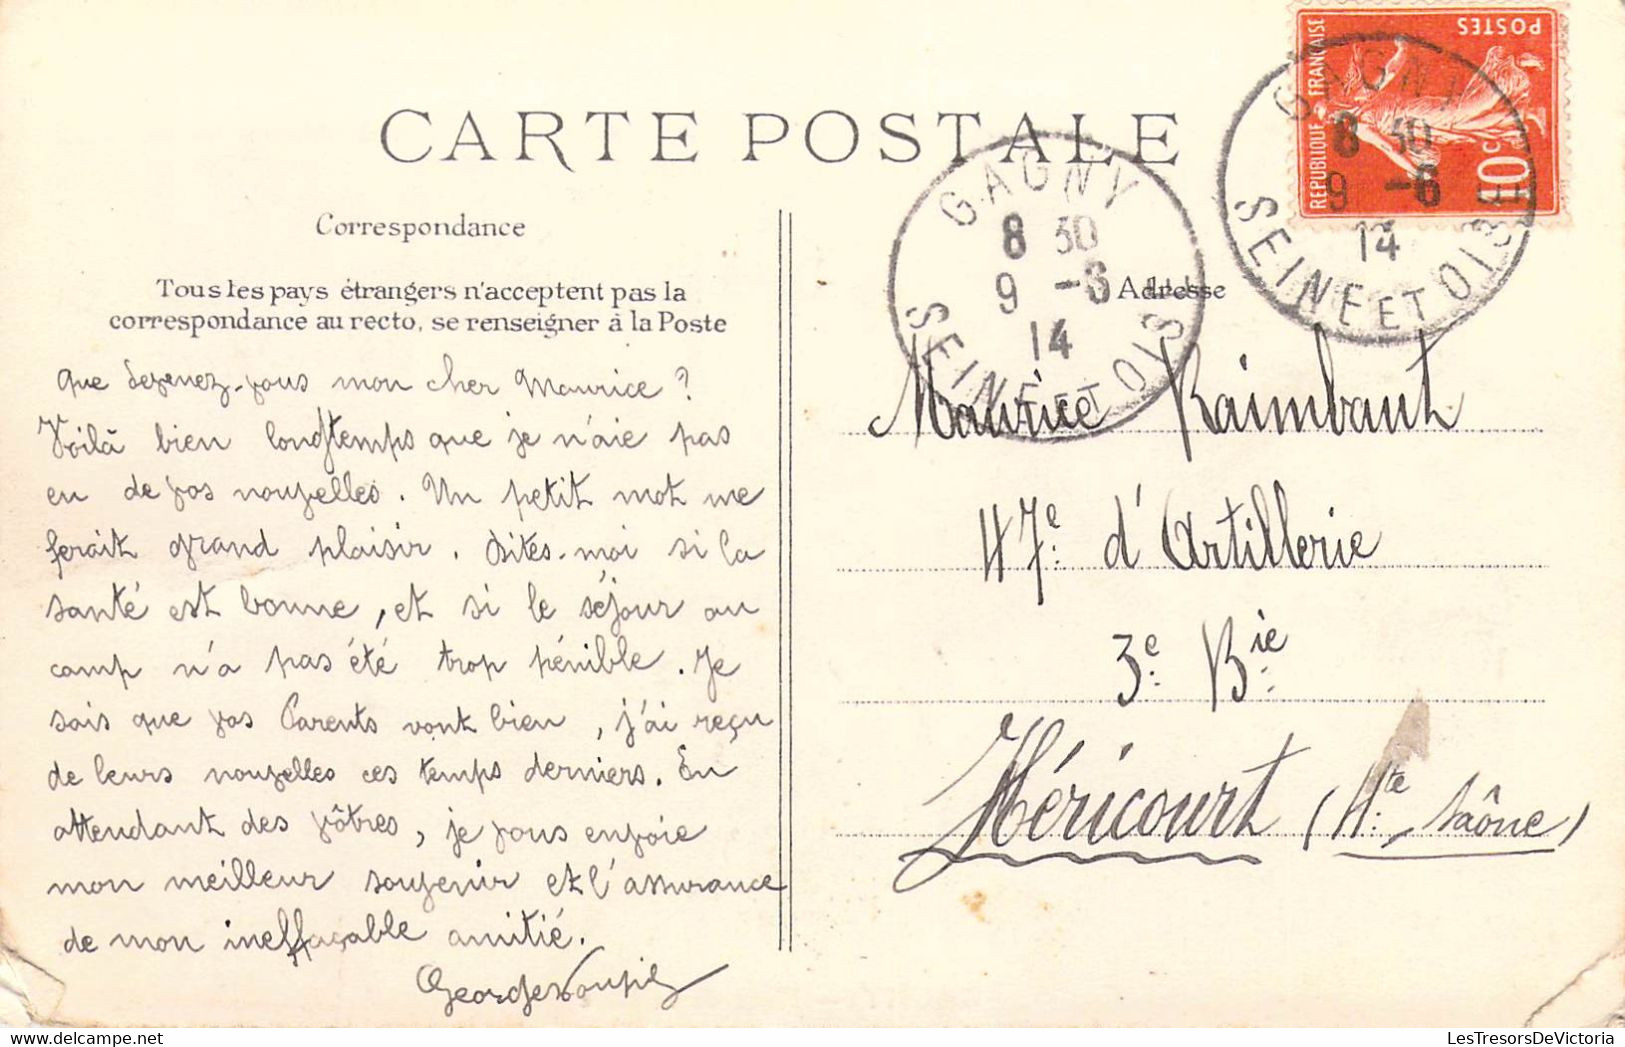 CARTE POSTALE
Correspondance
Tous les pays étrangers n'acceptent pas la
correspondance au recto, se renseigner à la Poste
Que devenez-vous mon cher Maurice ?
Voilà bien longtemps que je n'aie pas
eu de vos nouvelles. Un petit mot me
ferait grand plaisir. Dites-moi si la
santé est bonne, et si le séjour au
camp n'a pas été trop pénible. Je
sais que vos Parents vont bien, j'ai reçu
de leurs nouvelles ces temps derniers. En
attendant des vôtres, je vous envoie
mon meilleur souvenir et l'assurance
de mon ineffaçable amitié.
Georges
GAGNY
8 30
9 -6
14
SEINE ET OISE
GAGNY
8 30
9 -6
14
SEINE ET OISE
REPUBLIQUE FRANÇAISE
POSTES
10 c
Adresse
Maurice Raimbault
47e d'Artillerie
3e Bie
Héricourt (Hte Saône)
LesTresorsDeVictoria.com